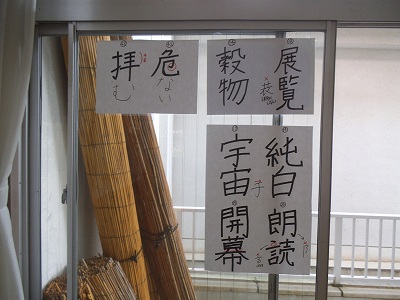 展覧
穀物
危ない
拝む
純白
朗読
宇宙
開幕